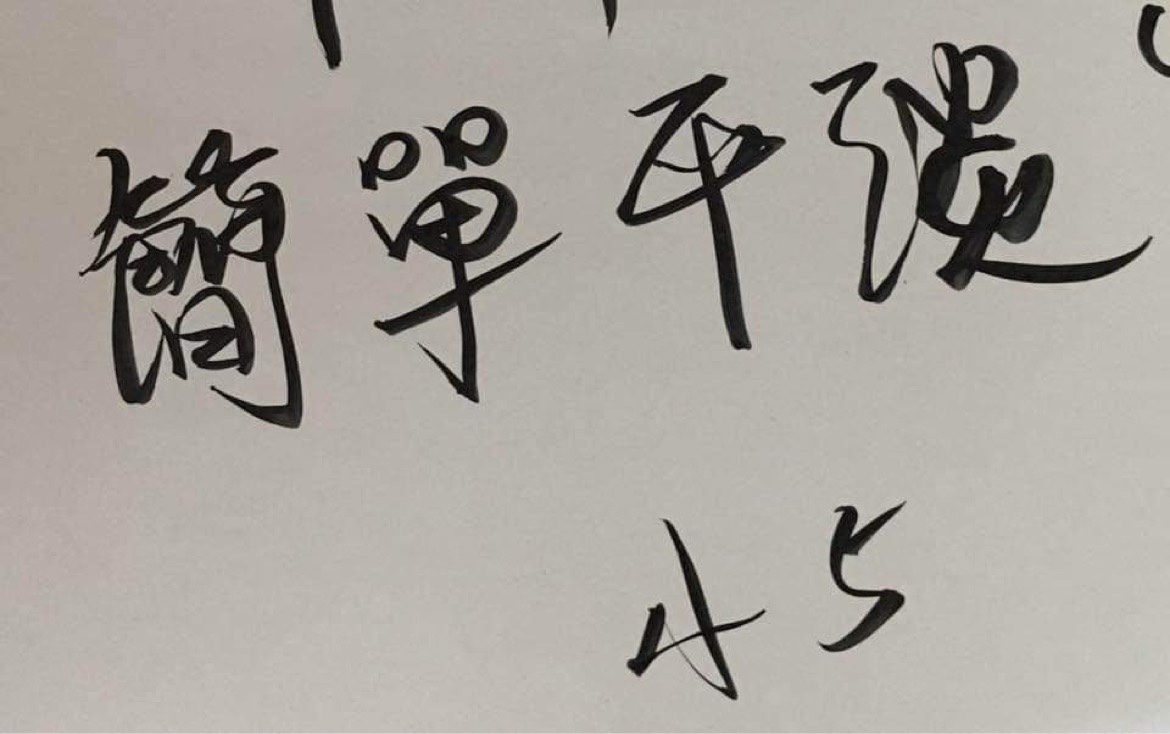 簡單平
45